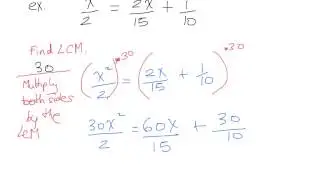 ex. x²/2 = 2x/15 + 1/10
Find LCM.
30
Multiply both sides by the LCM
(x²/2)·30 = (2x/15 + 1/10)·30
30x²/2 = 60x/15 + 30/10